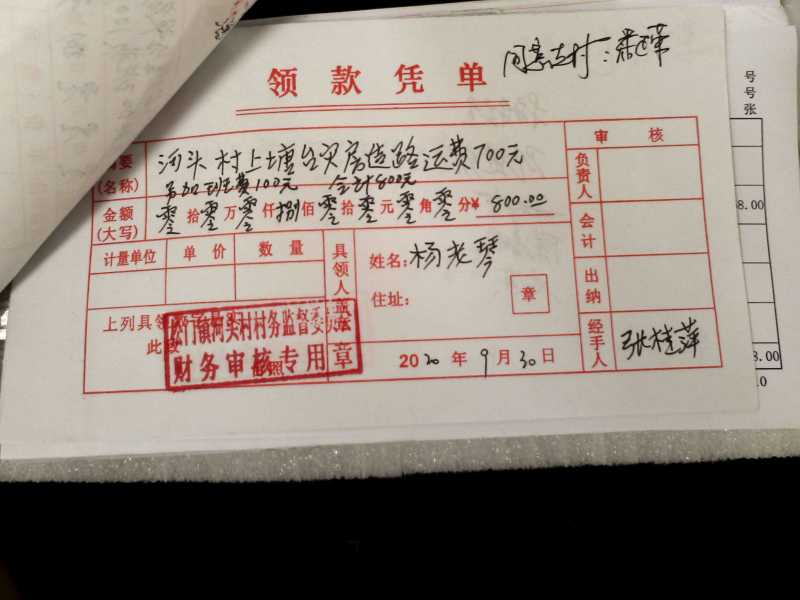 领款凭单
摘要
(名称)
河头村上塘 买房造路运费700元
加班费100元 合计800元
金额
(大写)
零拾零万零仟捌佰零拾零元零角零分¥ 800.00
计量单位 单价 数量
具领人盖章
姓名:杨老琴
住址:
章
上列具领
此致
门镇河头村村务监督委
财务审核专用章
2020年9月30日
审核
负责人
会计
出纳
经手人
张桂萍
号
号
张
8.00
8.00
0